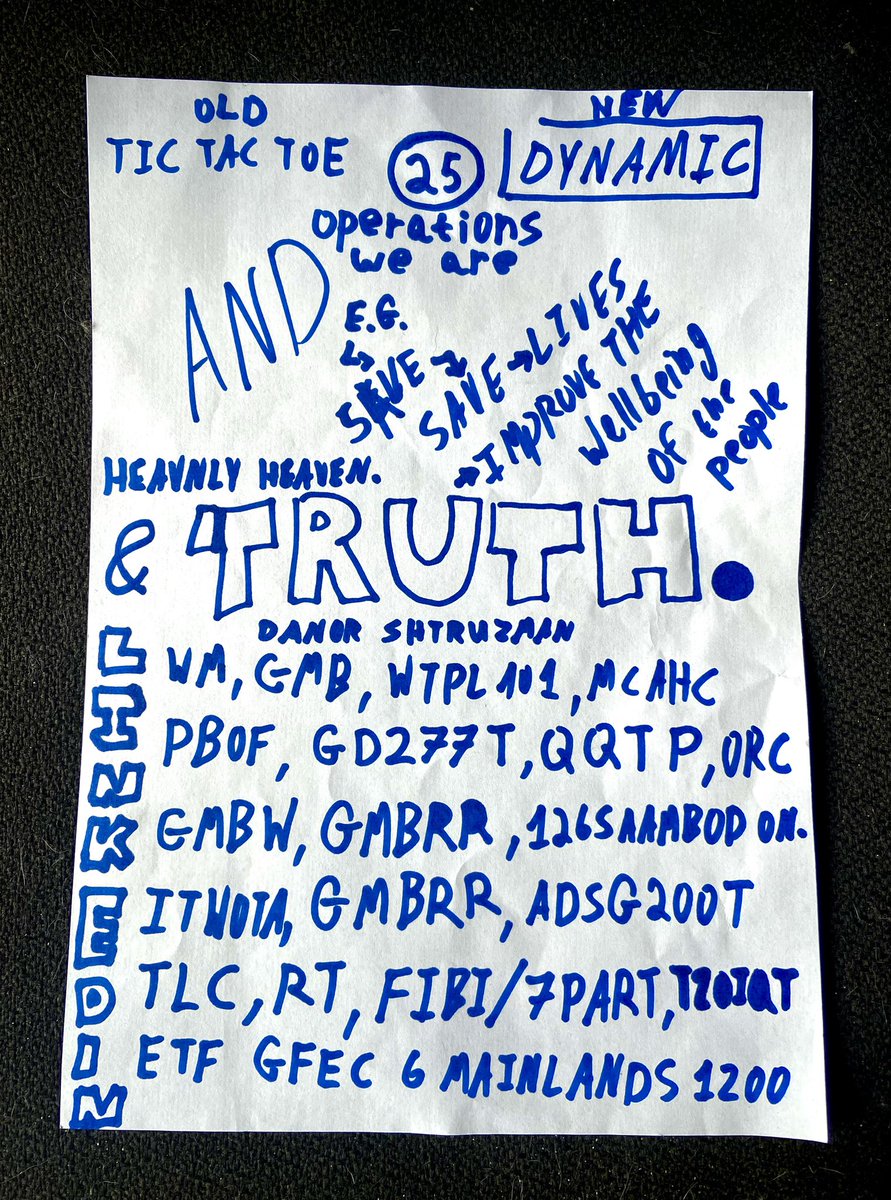 OLD
TIC TAC TOE
25
NEW
DYNAMIC
operations
we are
AND
E.G.
SAVE
SAVE → LIVES
→ IMPROVE THE
Wellbeing
OF the
people
HEAVNLY HEAVEN.
& TRUTH.
DANOR SHTRUZMAN
LINKEDIN
WM, GMB, WTPL101, MCAHC
PBOF, GD277T, QQTP, ORC
GMBW, GMBRR, 126SAAMBOD ON.
ITWOTA, GMBRR, ADSG200T
TLC, RT, FIBI/7PART,
ETF GFEC 6 MAINLANDS 1200